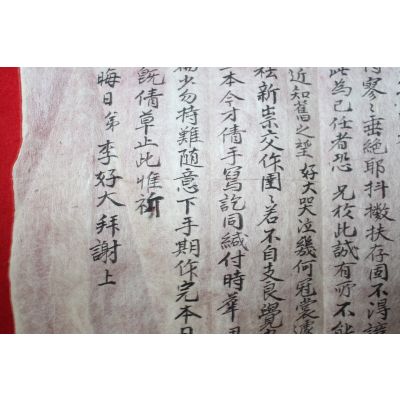 得寥〻垂絶耶抖擻扶存固不得
此為己任者恐 兄於此誠有所不能
近知舊之望 好大哭泣幾何冠裳遽
新祟交作圉〻若不自支良覺
本今才倩手寫訖同緘付時
少勿持難隨意下手期作完本日
旣倩草止此惟祈
晦日弟 李好大拜謝上